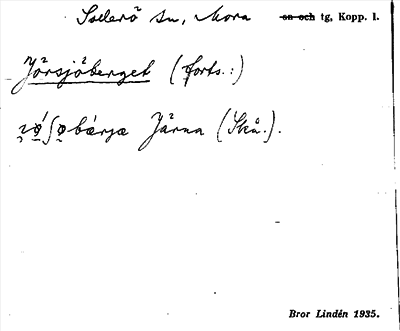 Sollerö sn, Mora sn och tg, Kopp. l.
Jörsjöberget (forts.:)
Järna (Skå.).
Bror Lindén 1935.